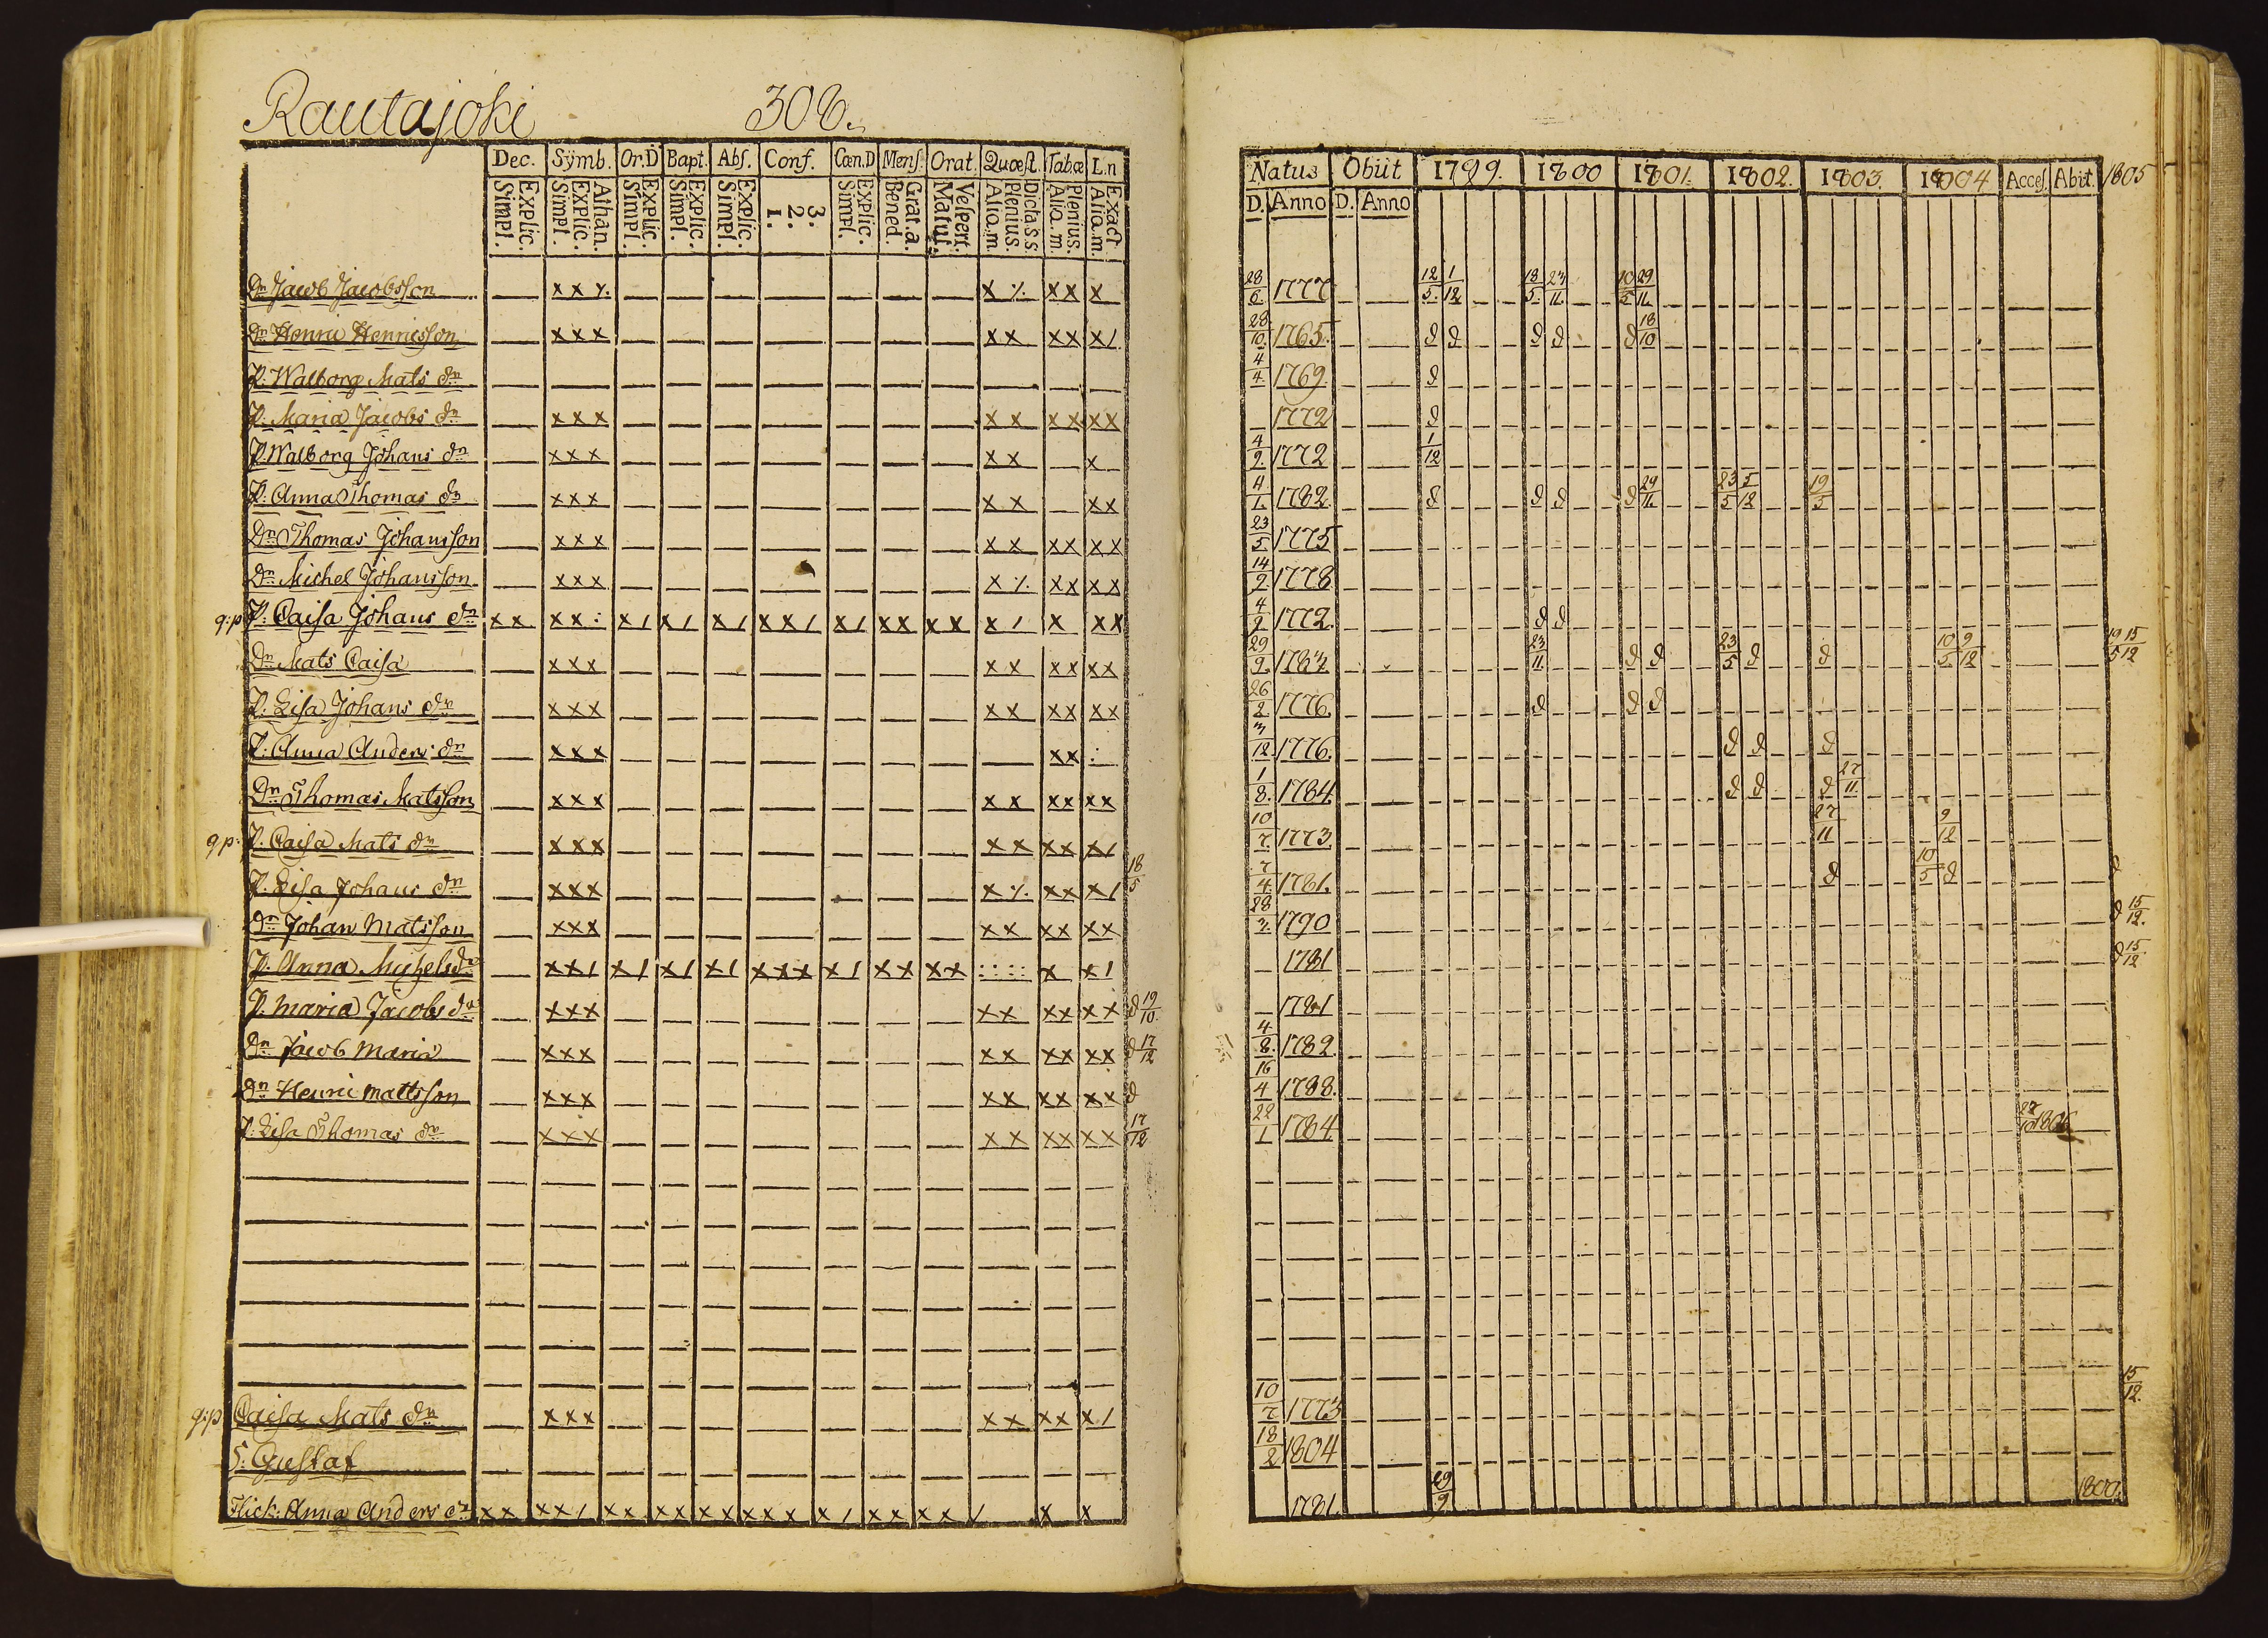 Rautajoki 308.
Dec. Symb. Or.D Bapt. Abs. Conf. Cœn.D Mens. Orat. Quœst. Tab.œ L.n
Explic. Simpl. Athan. Explic. Simpl. Explic. Simpl. Explic. Simpl. Explic. Simpl. 3. 2. 1. Explic. Simpl. Grat.a. Bened. Vespert. Matut. Dicta s.s. Plenius. Alia.m. Plenius. Alia.m. Exact Alia.m.
Dn Jacob Jacobsson x x ⁒ x ⁒ xx x
Dn Henric Henricsson xxx xx xx x/
P. Walborg Mats dr
P. Maria Jacobs dr xxx xx xx xx
P. Walborg Johans dr xxx xx x
P. Anna Thomas dr xxx xx xx
Dn Thomas Johansson xxx xx xx xx
Dn Michel Johansson xxx x ⁒ xx xx
q:p P. Caisa Johans dr xx xx: x/ x/ x/ xx/ x/ xx xx x/ x xx
Dn Mats Caisa xxx xx xx xx
P. Lisa Johans dr xxx xx xx xx
P. Anna Anders dr xxx xx :
Dn Thomas Matsson xxx xx xx xx
q p: P. Caisa Mats dr xxx xx xx x/
P. Lisa Johans dr xxx x ⁒ xx x/ 18/5
Dn Johan Matsson xxx xx xx xx
P. Anna Michels dr xx/ x/ x/ x/ xxx x/ xx xx :::: x x/
P. Maria Jacobs dr xxx xx xx xx d 19/10
Dn Jacob Maria xxx xx xx xx d 17/12
Dn Henric Mattsson xxx xx xx xx d
P. Lisa Thomas dr xxx xx xx xx 17/12
q:p Caisa Mats dr xxx xx xx x/
S. Gustaf
Flick: Anna Anders dr xx xx/ xx xx xx xxx x/ xx xx / x x
Natus Obiit 1799. 1800 1801. 1802. 1803. 1804 Acces. Abit. 1805
D. Anno D. Anno
28/6 1777 12/5. 1/12 18/5. 10/5 29/11.
28/10 1765. d d d d d 18/10
4/4 1769. d
1772 d
4/9. 1772 1/12
4/1. 1782. d d d d 29/11. 23/5 5/12 19/5
23/5 1775
14/9 1778
4/9 1772. d d
29/9. 23/11. d d 23/5 d d 10/5 9/12 19/5 15/12
26/2 1776. d d d
12. 1776. d d d
1/8. 1784. d d d 27/11
10/7. 1773. 27/11 9/12
7/4. 1781. d 10/5 d d
28 1790 d 15/12.
1781 d 15/12
1781
4/8. 1782
16/4 1788.
22/1 1784 1806
10/7 1773 15/12.
18/2 1804
1781. 29/9. 1800.